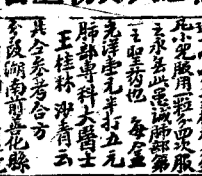 凡小兒服用一粒分四次服
云永無此患誠肺部第
一之聖药也 每盒
光洋壹元半打五元
肺部專科大醫士
王桂林 沙青云
共仝参考合方
分設湖南前善化縣